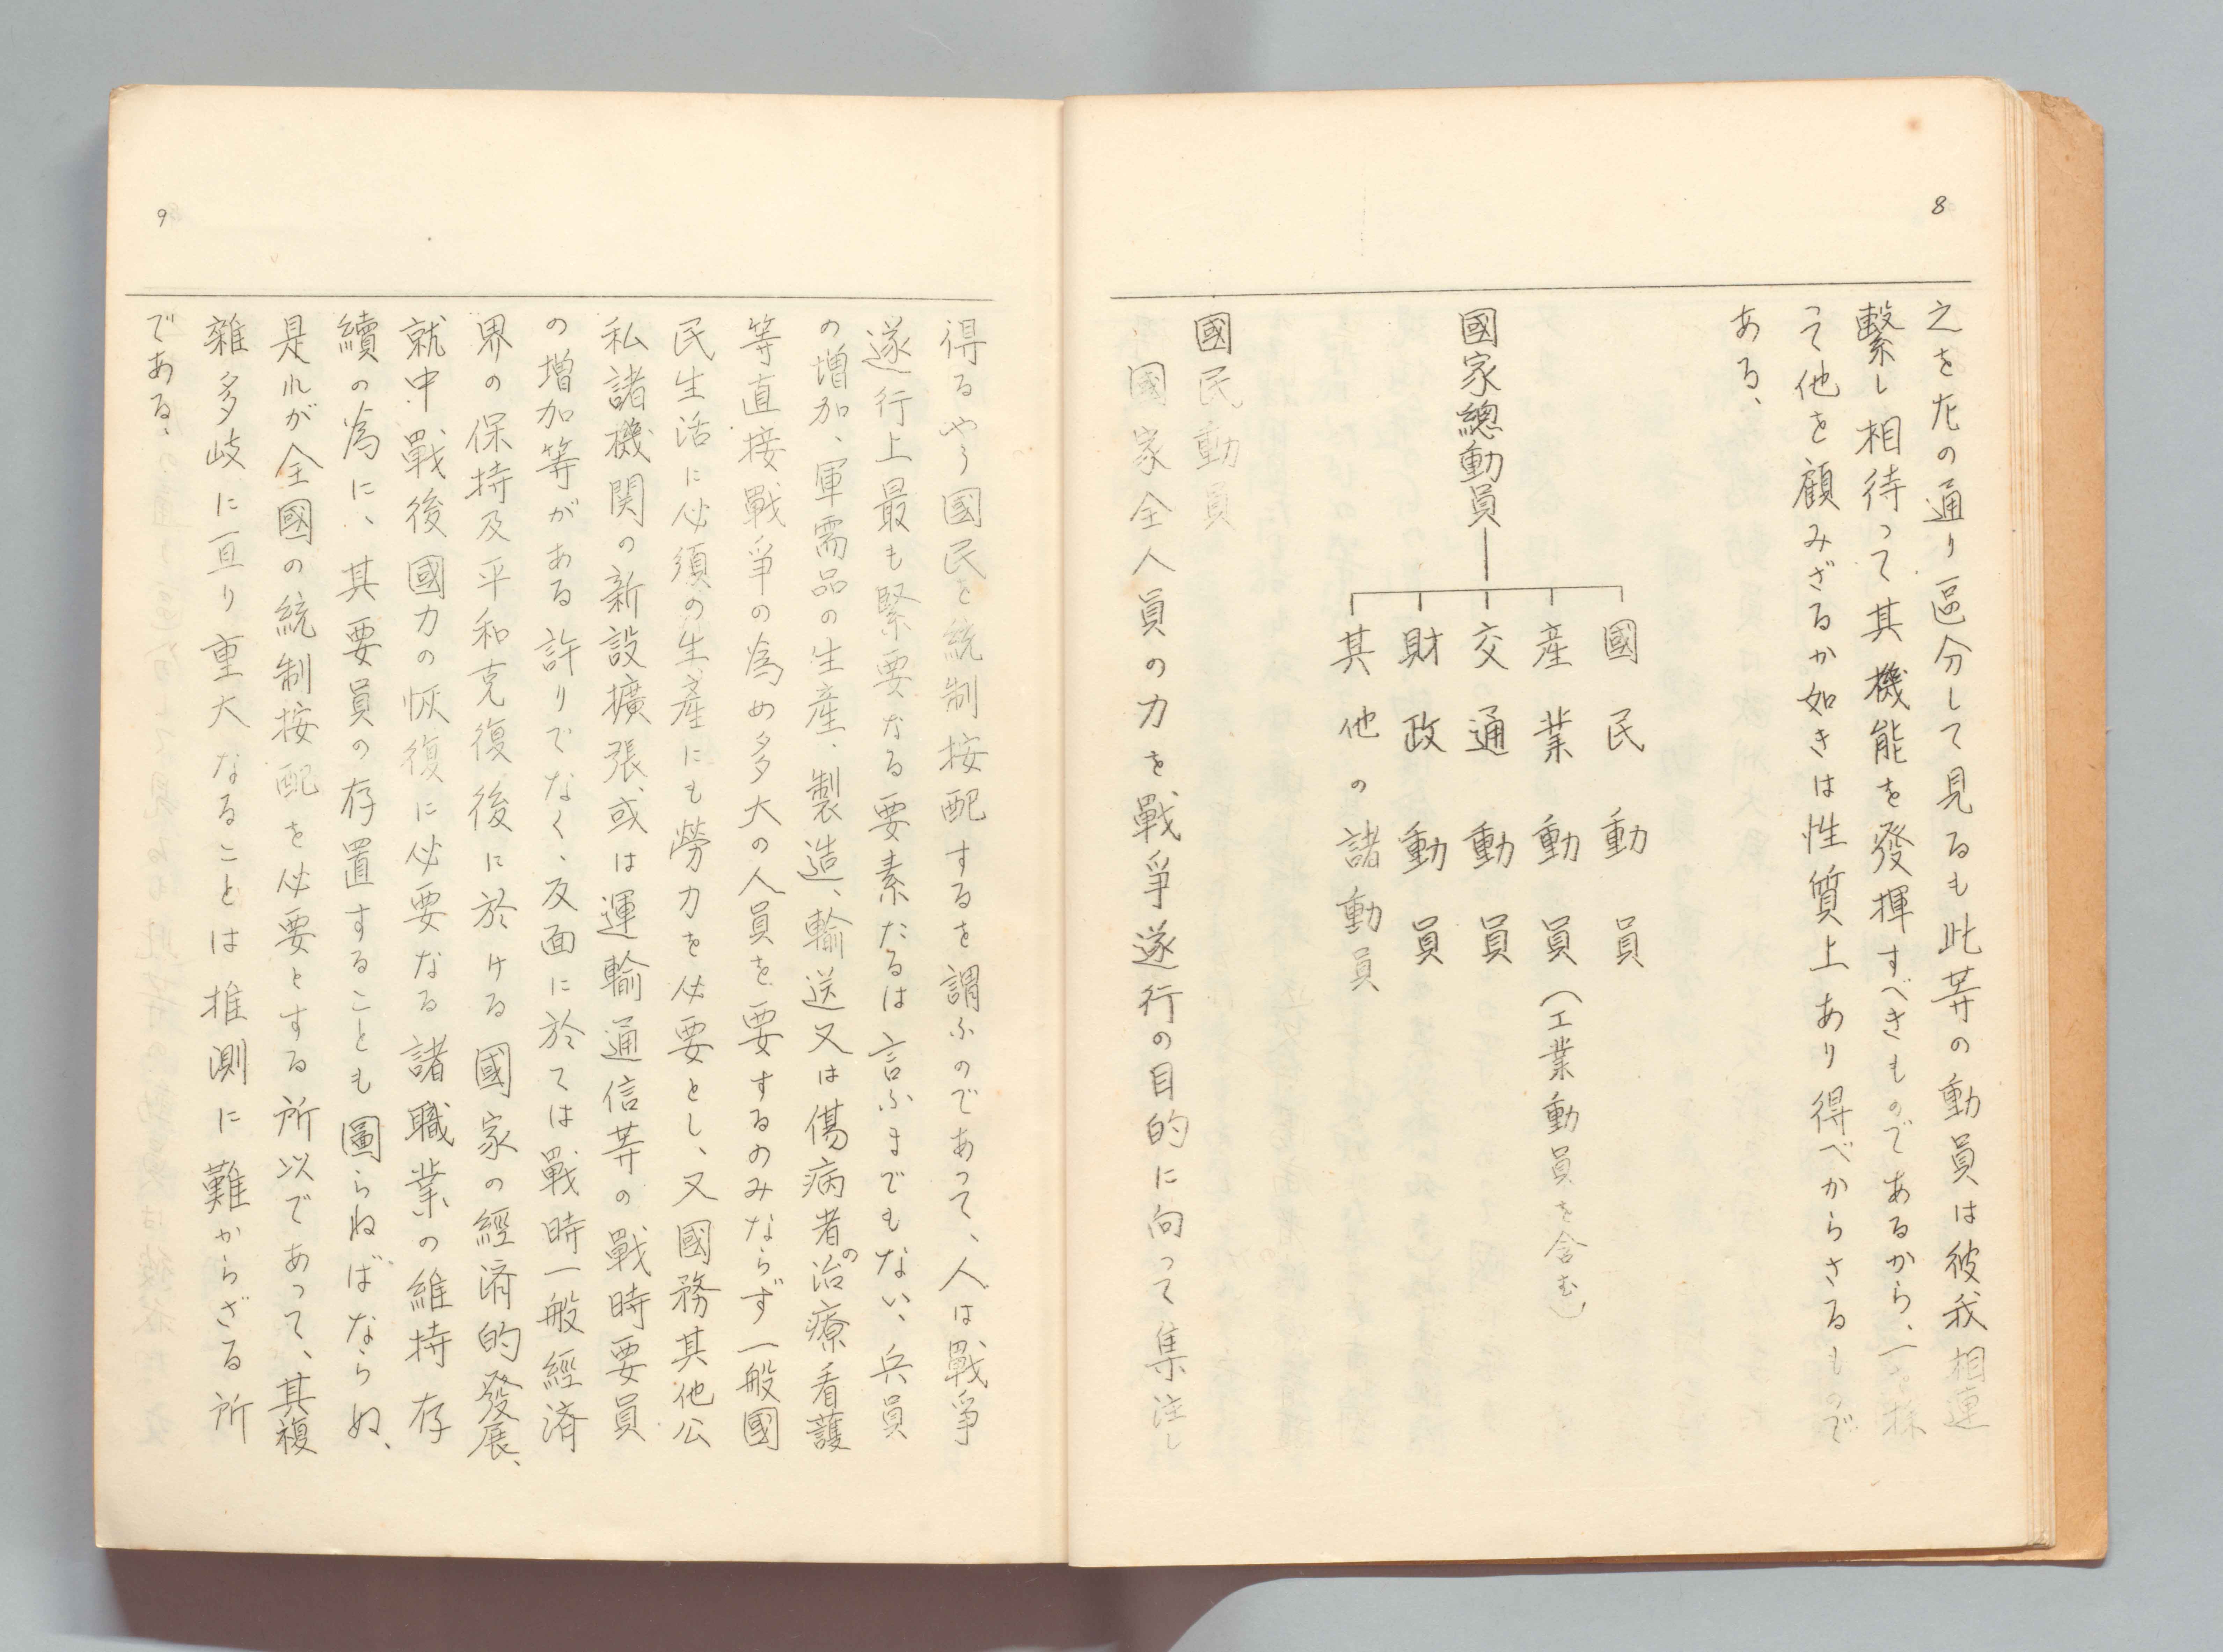 8
之を左の通り區分して見るも此等の動員は彼我相連
繫し相待って其機能を發揮すべきものであるから、一を採
って他を顧みざるか如きは性質上あり得べからさるもので
ある、
國家總動員
國民動員
産業動員(工業動員を含む)
交通動員
財政動員
其他の諸動員
國民動員
國家全人員の力を戰爭遂行の目的に向って集注し
9
得るやう國民を統制按配するを謂ふのであって、人は戰爭
遂行上最も緊要なる要素たるは言ふまでもない、兵員
の増加、軍需品の生産、製造、輸送又は傷病者の治療看護
等直接戰爭の為め多大の人員を要するのみならず一般國
民生活に必須の生産にも勞力を必要とし、又國務其他公
私諸機関の新設擴張、或は運輸通信等の戰時要員
の増加等がある許りでなく、反面に於ては戰時一般經済
界の保持及平和克復後に於ける國家の經済的發展、
就中戰後國力の恢復に必要なる諸職業の維持存
續の為に、其要員の存置することも圖らねばならぬ、
是れが全國の統制按配を必要とする所以であって、其複
雜多岐に亘り重大なることは推測に難からざる所
である、